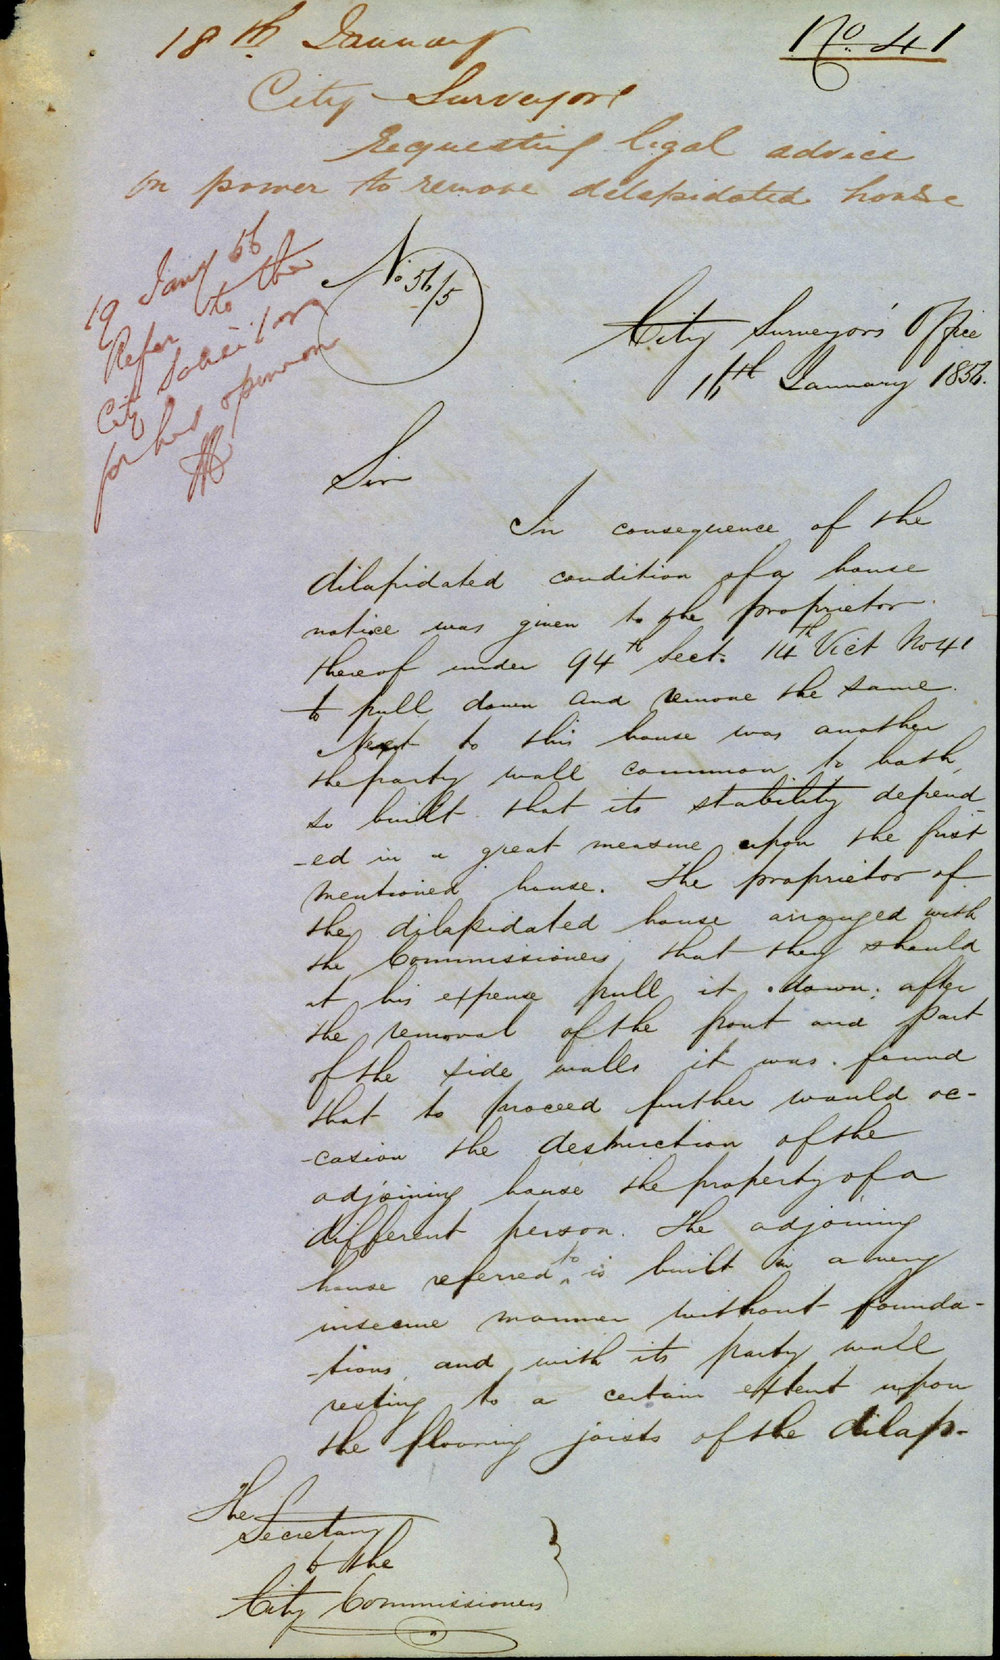 18th January
No. 41
City Surveyor
Requesting legal advice
on power to remove delapidated house
19 Jany 56
Refer to the
City Solicitor
for his opinion
No 56/5
City Surveyor's Office
16th January 1856.
Sir
In consequence of the
dilapidated condition of a house
notice was given to the proprietor
thereof under 94th Sect. 14th Vict No 41
to pull down and remove the same.
Next to this house was another
the party wall common to both,
so built that its stability depend-
-ed in a great measure upon the first
mentioned house. The proprietor of
the dilapidated house arranged with
the Commissioners that they should
at his expense pull it down; after
the removal of the front and part
of the side walls it was found
that to proceed further would oc-
-casion the destruction of the
adjoining house the property of a
different person. The adjoining
house referred to is built in a very
insecure manner without founda-
-tions and with its party wall
resting to a certain extent upon
the flooring joists of the dilap-
The
Secretary
to the
City Commissioners